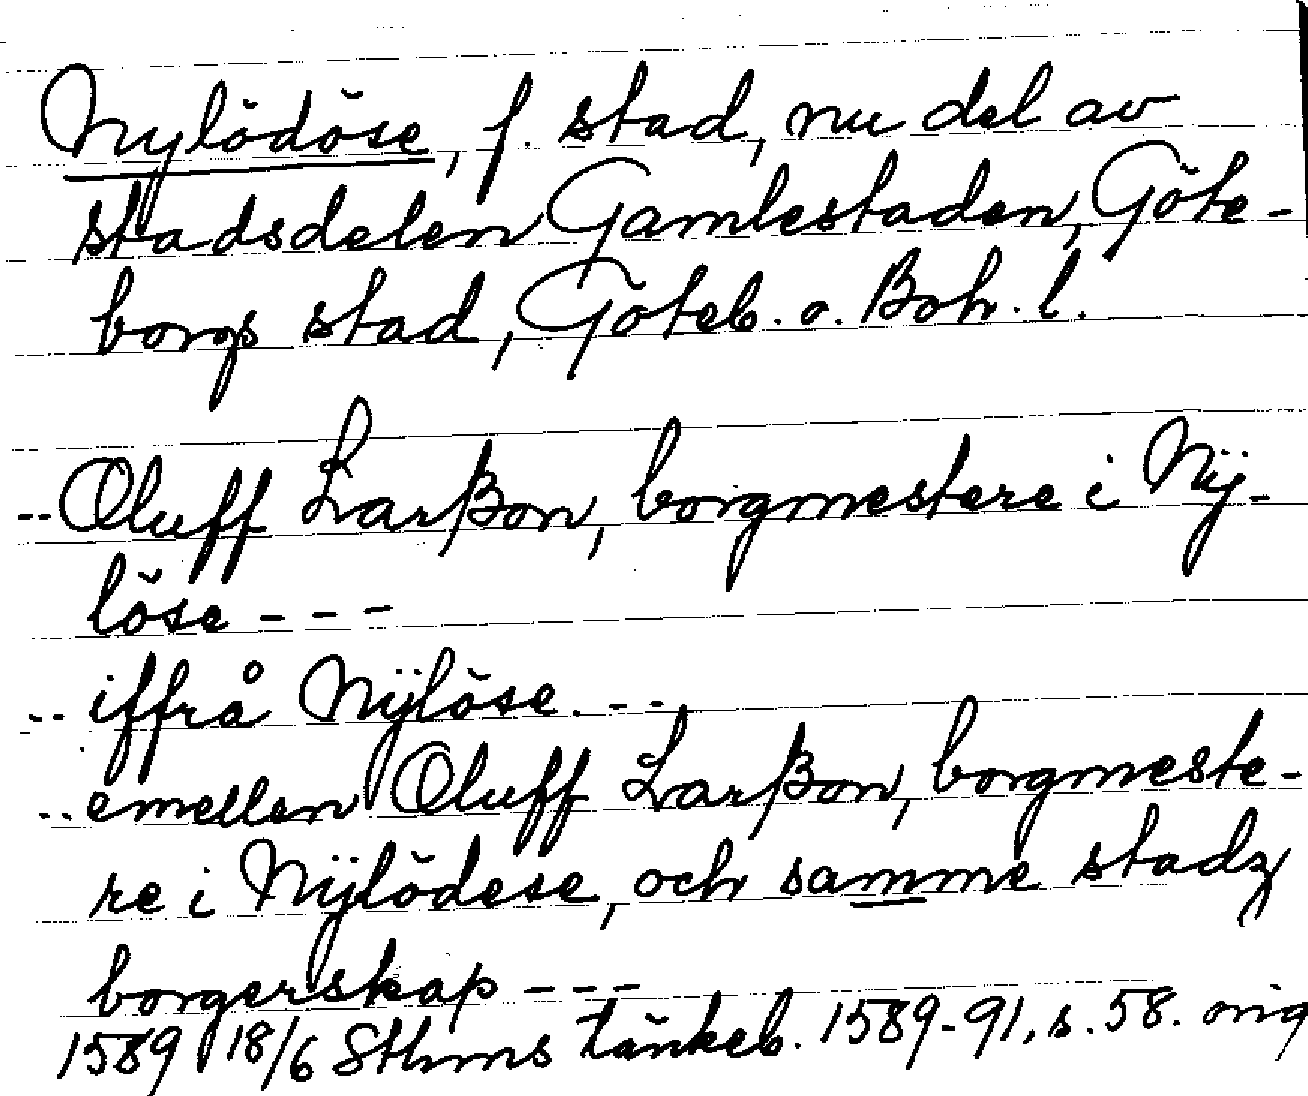 Nylödöse, f. stad, nu del av
stadsdelen Gamlestaden, Göte-
borgs stad, Göteb. o. Boh. l.
-- Oluff Larßon, borgmestere i Nÿ-
löse - - -
-- iffrå Nÿlöse. - -
-- emellen Oluff Larßon, borgmeste-
re i Nÿlödese, och samme stadz
borgerskap - - -
1589 18/6 Sthms tänkeb. 1589-91, s. 58. orig